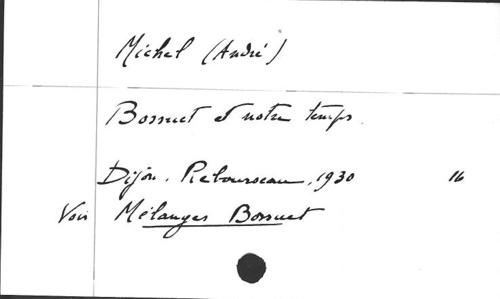 Michel (André)
Bossuet et notre temps.
Dijon. Rebourseau, 1930 16
Voir Mélanges Bossuet